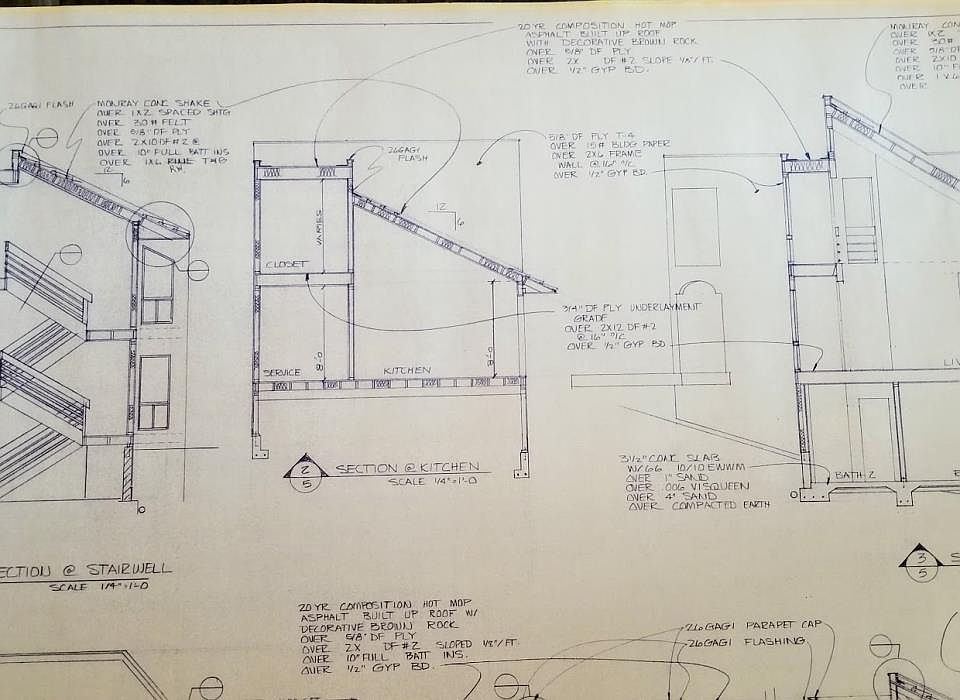 20 YR COMPOSITION HOT MOP
ASPHALT BUILT UP ROOF
WITH DECORATIVE BROWN ROCK
OVER 5/8" DF PLY
OVER 2X DF #2 SLOPE 1/8"/FT.
OVER 1/2" GYP BD.
MONRAY CON
OVER 1X2
OVER 30#
OVER 5/8" DF
OVER 2X10
OVER 10" F
OVER 1X6
OVER
26GAGI FLASH
MONRAY CONC SHAKE
OVER 1X2 SPACED SHTG
OVER 30# FELT
OVER 5/8" DF PLY
OVER 2X10 DF #2 @
OVER 10" FULL BATT INS
OVER 1X6 PINE T&G
12
6
26GAGI
FLASH
5/8 DF PLY T-4
OVER 15# BLDG PAPER
OVER 2X6 FRAME
WALL @ 16" O/C
OVER 1/2" GYP BD.
12
6
VARIES
CLOSET
3/4" DF PLY UNDERLAYMENT
GRADE
OVER 2X12 DF #2
@ 16" O/C
OVER 1/2" GYP BD
8'-0
8'-0
SERVICE
KITCHEN
LIV
2
5
SECTION @ KITCHEN
SCALE 1/4"=1'-0
3 1/2" CONC SLAB
W/ 66 10/10 EWWM
OVER 1" SAND
OVER .006 VISQUEEN
OVER 4" SAND
OVER COMPACTED EARTH
BATH 2
ECTION @ STAIRWELL
SCALE 1/4"=1'-0
3
5
S
20 YR COMPOSITION HOT MOP
ASPHALT BUILT UP ROOF W/
DECORATIVE BROWN ROCK
OVER 5/8" DF PLY
OVER 2X DF #2 SLOPED 1/8"/FT.
OVER 10" FULL BATT INS.
OVER 1/2" GYP BD.
26GAGI PARAPET CAP
26GAGI FLASHING